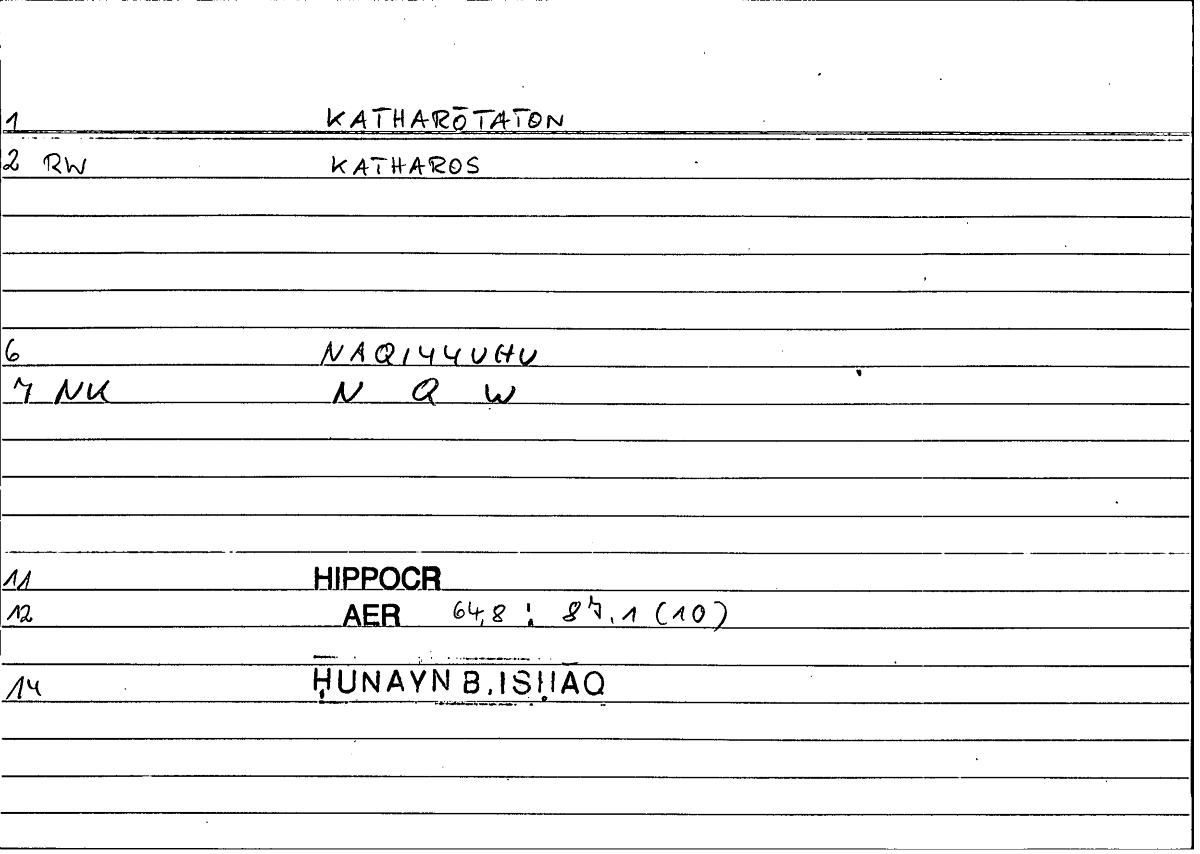 1 KATHARŌTATON
2 RW KATHAROS
6 NAQIYYUHU
7 NK N Q W
11 HIPPOCR
12 AER 64,8 : 87,1 (10)
14 ḤUNAYN B. ISḤĀQ